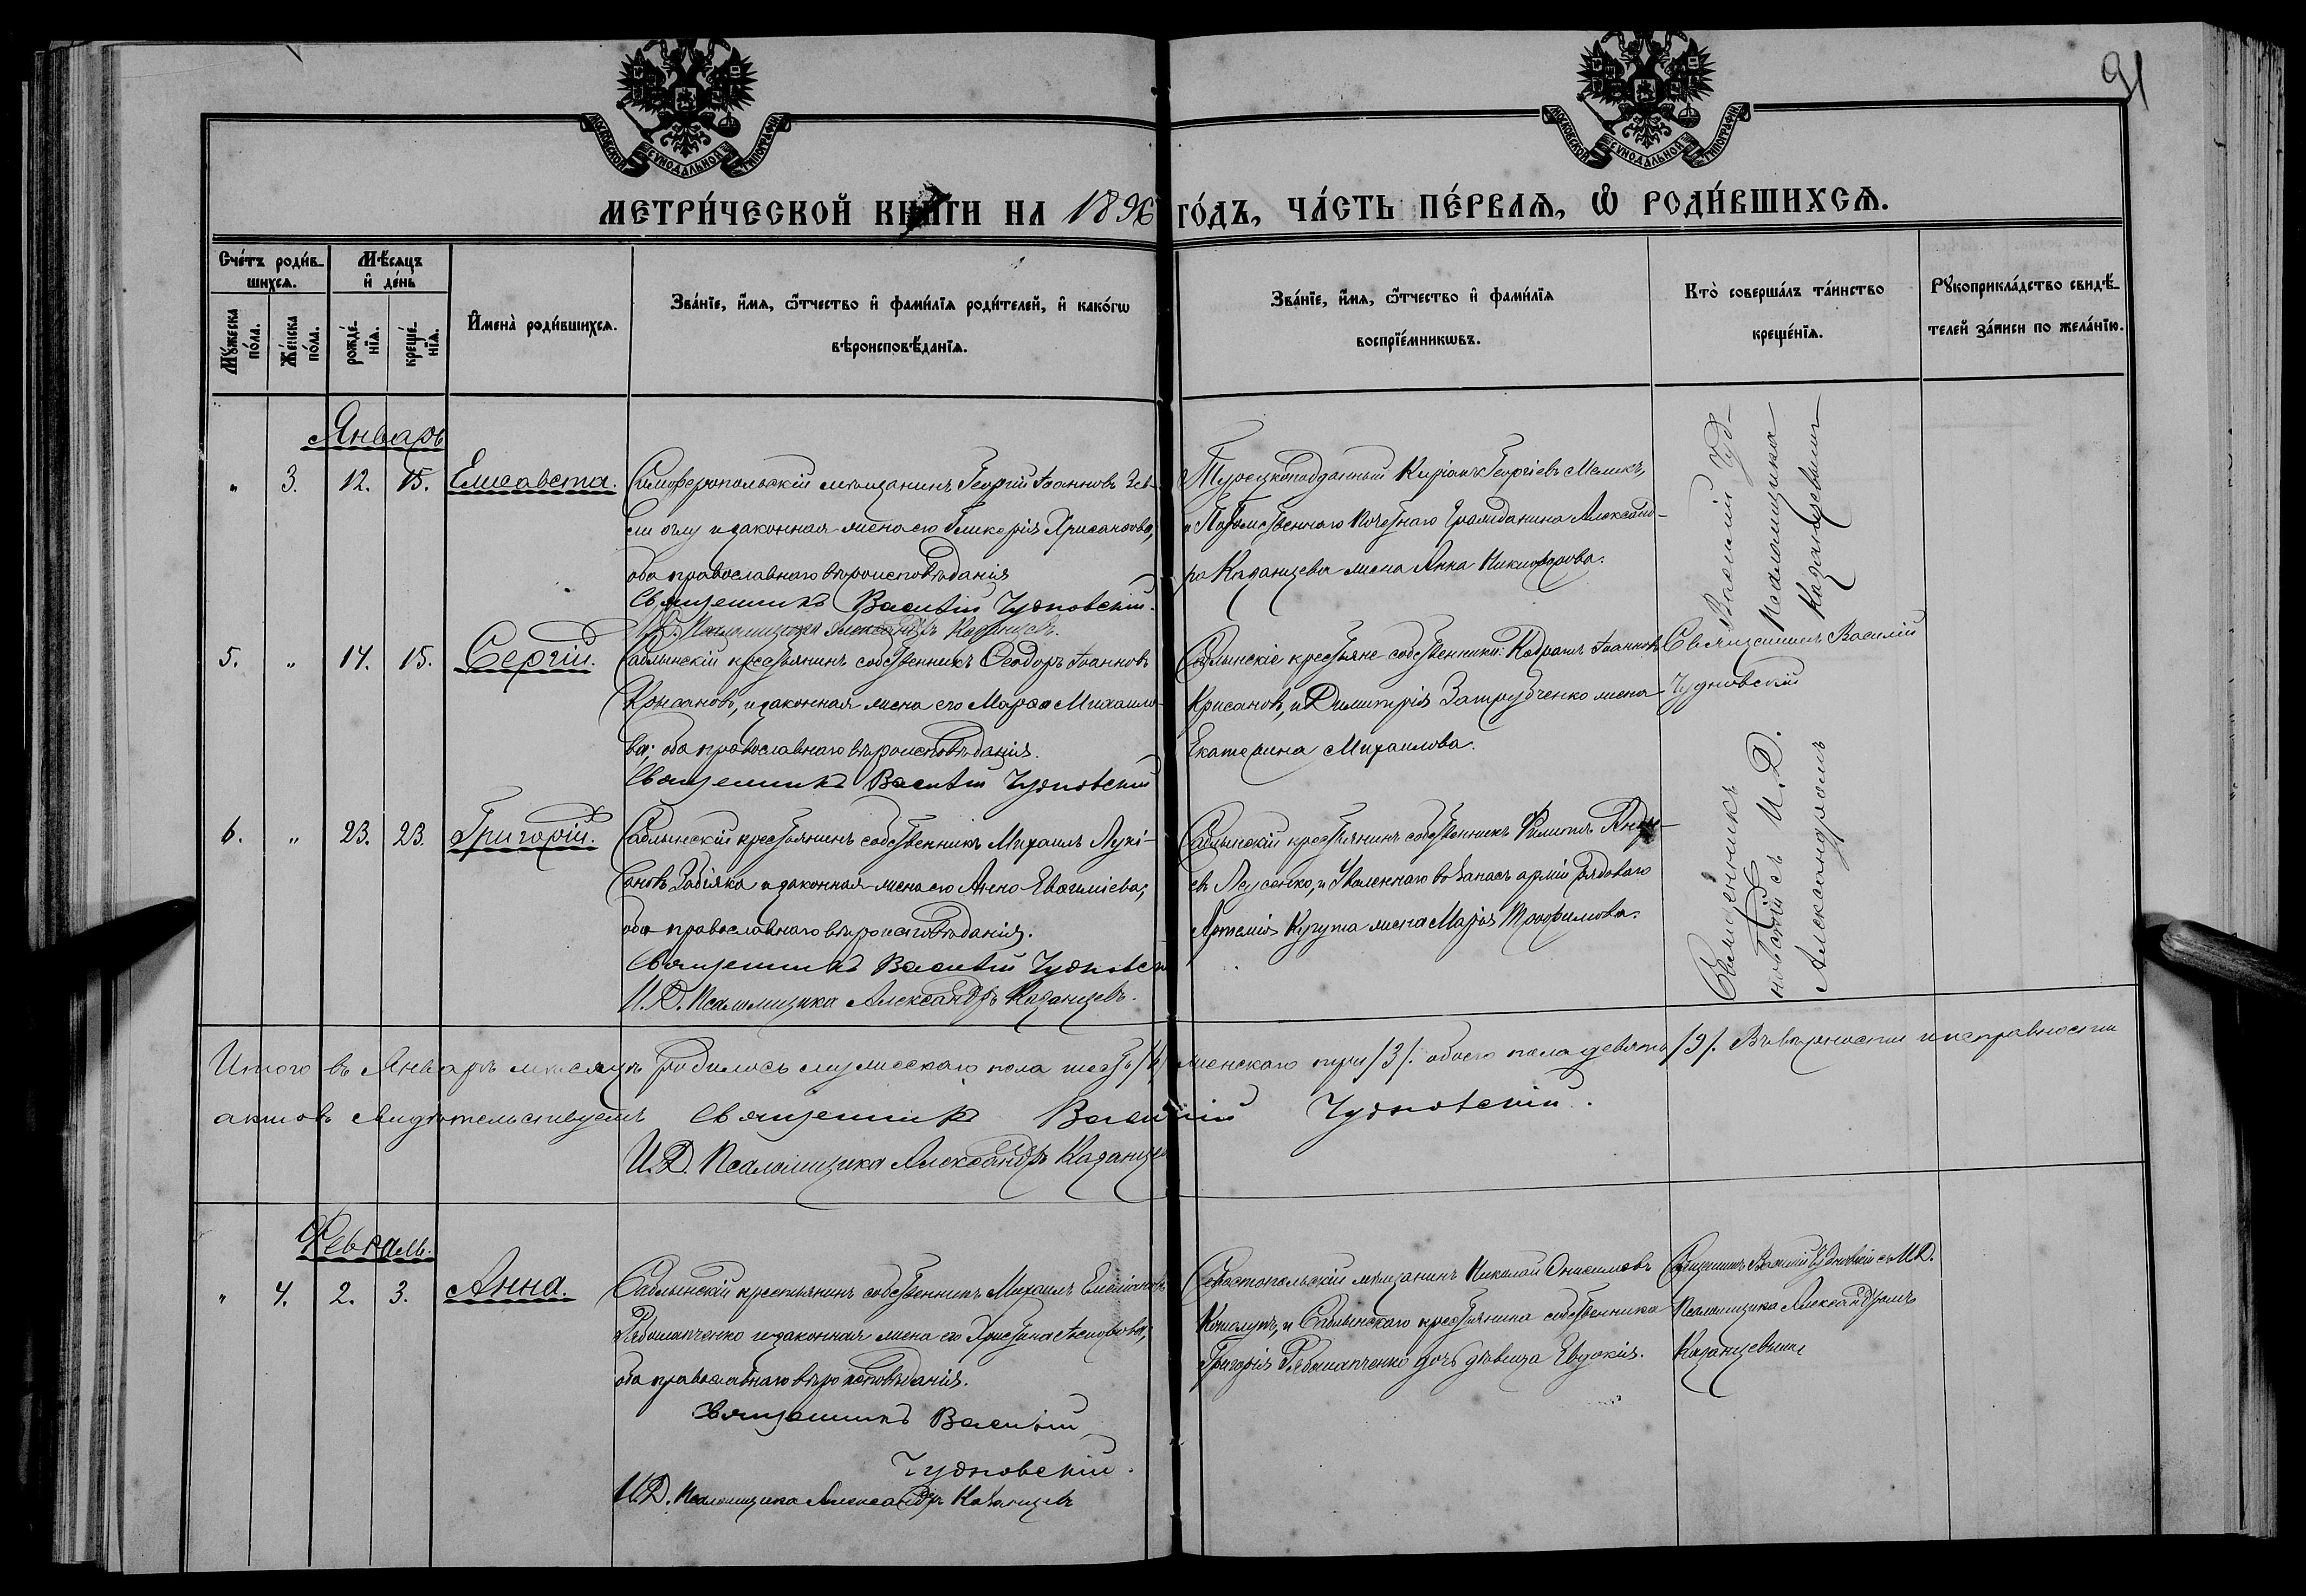 91
МОСКОВСКОЙ СѴНОДАЛЬНОЙ ТИПОГРАФІИ
МОСКОВСКОЙ СѴНОДАЛЬНОЙ ТИПОГРАФІИ
МЕТРИ́ЧЕСКОЙ КНИ́ГИ НА 1896 ГО́ДЪ, ЧА́СТЬ ПЕ́РВАѦ, Ѡ҆ РОДИ́ВШИХСѦ.
Сче́тъ роди́в-
шихсѧ.
Мꙋ́жеска по́ла.
Же́нска по́ла.
Мѣ́сѧцъ
и҆ де́нь
рожде́-
нїѧ.
креще́-
нїѧ.
И҆мена̀ роди́вшихсѧ.
Зва́нїе, и҆́мѧ, ѻ҆́тчество и҆ фами́лїѧ роди́телей, и҆ како́гѡ
вѣроисповѣ́данїѧ.
Зва́нїе, и҆́мѧ, ѻ҆́тчество и҆ фами́лїѧ
воспрїе́мникѡвъ.
Кто̀ соверша́лъ та́инство
креще́нїѧ.
Рꙋкоприкла́дство свидѣ́-
телей за́писи по жела́нїю.
Январь
" 3. 12. 15. Елисавета.
Симферопольскій мѣщанинъ Георгій Іоанновъ
и законная жена его Гликерія Хрисанѳова,
оба православнаго вѣроисповѣданія
Священникъ Василій Чудновскій.
И.Д. Псаломщика Александръ Казанцевъ.
Турецкоподданный Киріакъ Георгіевъ
и Потомственнаго Почетнаго Гражданина Александ-
ра Казанцева жена Анна Никифорова.
Священникъ Василій Чуд-
новскій съ И.Д. Псаломщика
Александромъ Казанцевымъ
5. " 14. 15. Сергій.
Саблынскій крестьянинъ собственникъ Ѳеодоръ Іоанновъ
Крисановъ, и законная жена его Марѳа Михаило-
ва; оба православнаго вѣроисповѣданія.
Священникъ Василій Чудновскій
Саблынскіе крестьяне собственники: Іоанновъ
Крисановъ, и Димитрія жена
Екатерина Михаилова.
Священникъ Василій
Чудновскій
6. " 23. 23. Григорій.
Саблынскій крестьянинъ собственникъ Михаилъ Лукі-
ановъ Забіяка и законная жена его Анна Евѳиміева;
оба православнаго вѣроисповѣданія.
Священникъ Василій Чудновск
И.Д. Псаломщика Александръ Казанцевъ.
Саблынскій крестьянинъ собственникъ Филиппъ Андре-
евъ и Уволеннаго въ запасъ арміи рядоваго
Артемія жена Марія Трофимова.
Итого въ Январѣ мѣсяцѣ родилось мужескаго пола шесть /6/ женскаго три /3/. обоего пола девять /9/. Въ вѣрности и исправности
актовъ свидѣтельствуемъ Священникъ Василій Чудновскій.
И.Д. Псаломщика Александръ Казанцев
Февраль.
" 4. 2. 3. Анна.
Саблынскій крестьянинъ собственникъ Михаилъ Емеліановъ
Рябошапченко и законная жена его Христина
оба православнаго вѣроисповѣданія.
Священникъ Василій
Чудновскій.
И.Д. Псаломщика Александръ Казанцевъ
Севастопольскій мѣщанинъ Николай Онисимовъ
и Саблынскаго крестьянина собственника
Григорія Рябошапченко дочь дѣвица Евдокія.
Священникъ Василій Чудновскій съ И.Д.
Псаломщика Александромъ
Казанцевымъ